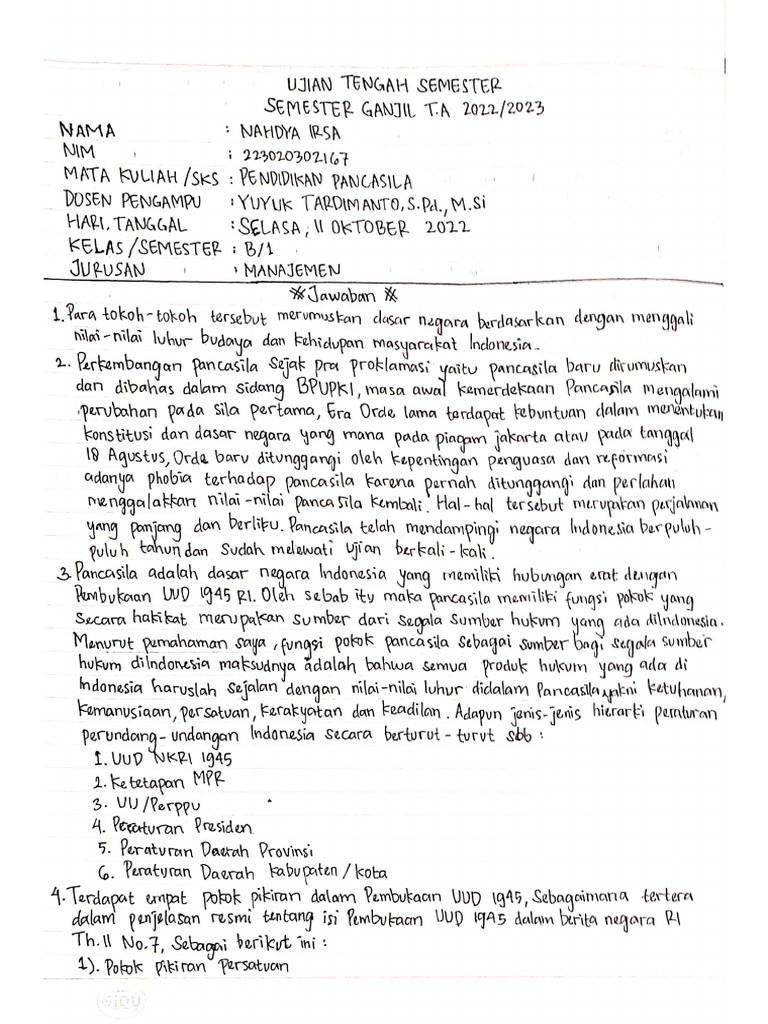 UJIAN TENGAH SEMESTER
SEMESTER GANJIL T.A 2022/2023
NAMA : NAHDYA IRSA
NIM : 223020302167
MATA KULIAH/SKS : PENDIDIKAN PANCASILA
DOSEN PENGAMPU : YUYUK TARDIMANTO, S.Pd., M.Si
HARI, TANGGAL : SELASA, 11 OKTOBER 2022
KELAS/SEMESTER : B/1
JURUSAN : MANAJEMEN
※ Jawaban ※
1. Para tokoh-tokoh tersebut merumuskan dasar negara berdasarkan dengan menggali
nilai-nilai luhur budaya dan kehidupan masyarakat Indonesia.
2. Perkembangan pancasila sejak pra proklamasi yaitu pancasila baru dirumuskan
dan dibahas dalam sidang BPUPKI, masa awal kemerdekaan Pancasila mengalami
perubahan pada sila pertama, Era Orde lama terdapat kebuntuan dalam menentukan
konstitusi dan dasar negara yang mana pada piagam jakarta atau pada tanggal
18 Agustus, Orde baru ditunggangi oleh kepentingan penguasa dan reformasi
adanya phobia terhadap pancasila karena pernah ditunggangi dan perlahan
menggalakkan nilai-nilai pancasila kembali. Hal-hal tersebut merupakan perjalanan
yang panjang dan berliku. Pancasila telah mendampingi negara Indonesia berpuluh-
puluh tahun dan sudah melewati ujian berkali-kali.
3. Pancasila adalah dasar negara Indonesia yang memiliki hubungan erat dengan
Pembukaan UUD 1945 RI. Oleh sebab itu maka pancasila memiliki fungsi pokok yang
secara hakikat merupakan sumber dari segala sumber hukum yang ada diIndonesia.
Menurut pemahaman saya, fungsi pokok pancasila sebagai sumber bagi segala sumber
hukum diIndonesia maksudnya adalah bahwa semua produk hukum yang ada di
Indonesia haruslah sejalan dengan nilai-nilai luhur didalam Pancasila yakni ketuhanan,
kemanusiaan, persatuan, kerakyatan dan keadilan. Adapun jenis-jenis hierarki peraturan
perundang-undangan Indonesia secara berturut-turut sbb :
1. UUD NKRI 1945
2. Ketetapan MPR
3. UU/Perppu
4. Peraturan Presiden
5. Peraturan Daerah Provinsi
6. Peraturan Daerah kabupaten/kota
4. Terdapat empat pokok pikiran dalam Pembukaan UUD 1945, Sebagaimana tertera
dalam penjelasan resmi tentang isi Pembukaan UUD 1945 dalam berita negara RI
Th.II No.7, Sebagai berikut ini :
1). Pokok pikiran Persatuan
SIDU